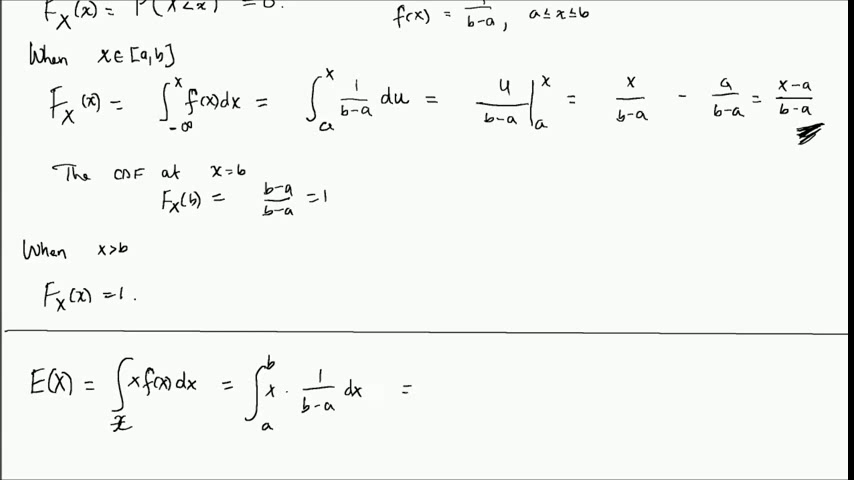 F_X(x) = P(X<x) = 0. f(x) = 1/(b-a), a≤x≤b
When x∈[a,b]
F_X(x) = ∫_{-∞}^{x} f(x)dx = ∫_a^x 1/(b-a) du = u/(b-a) |_a^x = x/(b-a) - a/(b-a) = (x-a)/(b-a)
The CDF at x=b
F_X(b) = (b-a)/(b-a) = 1
When x>b
F_X(x) = 1.
E(X) = ∫_𝓧 x f(x) dx = ∫_a^b x · 1/(b-a) dx =